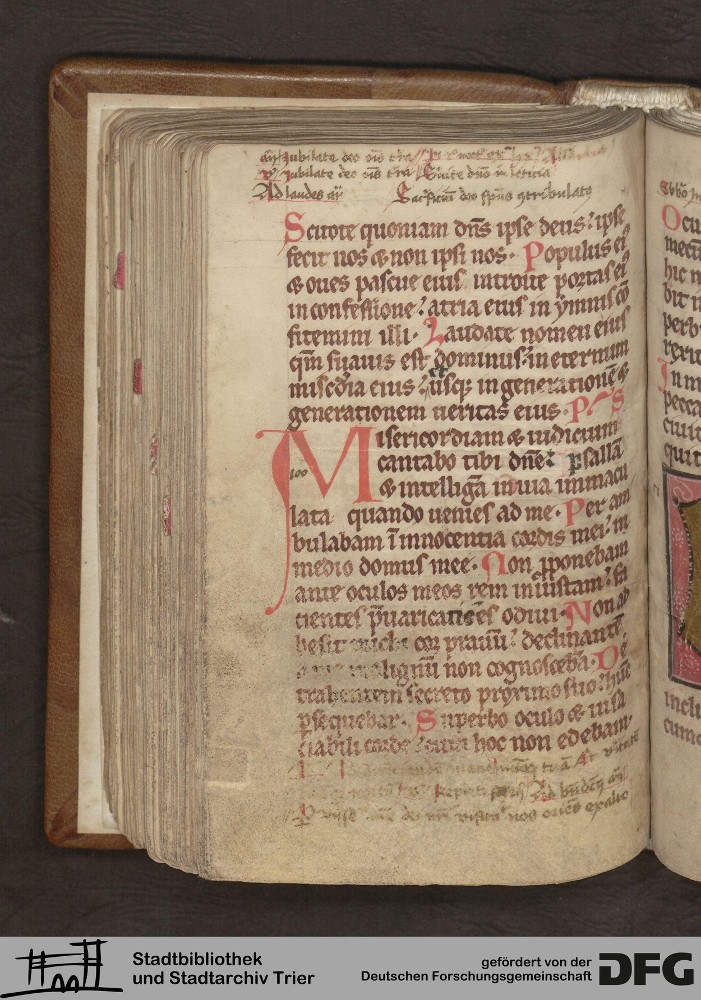 Jubilate deo ois tra
Jubilate deo ois tra Seruite dno in leticia
Ad laudes añ Sacrificiũ deo spũs ɔtribulatꝯ
Scitote quoniam dñs ipse deus: ipse
fecit nos & non ipsi nos. Populus eiꝰ
& oues pascue eius introite portas eiꝰ
in confessione: atria eius in ymnis cõ
fitemini illi. Laudate nomen eius
qm̃ suauis est dominus: in eternum
misc̃dia eius: usq; in generationẽ &
generationem ueritas eius. Ps
Misericordiam & iudicium
100
cantabo tibi dñe: psallã
& intelligã in uia inmacu
lata quando uenies ad me. Per am
bulabam ĩ innocentia cordis mei: in
medio domus mee. Non ꝓponebam
ante oculos meos rem iniustam: fa
cientes p̃uaricatiões odiui. Non ad
hesit michi cor prauũ: declinantẽ
a me malignũ non cognoscebã. De
trahentem secreto proximo suo: hũc
ꝑsequebar. Superbo oculo & insa
ciabili corde: cum hoc non edebam.
nos
Ocu
mecũ
hic n
bit i
perb
In m
pecca
ciuit
quit
incli
cum
Stadtbibliothek
und Stadtarchiv Trier
gefördert von der
Deutschen Forschungsgemeinschaft
DFG